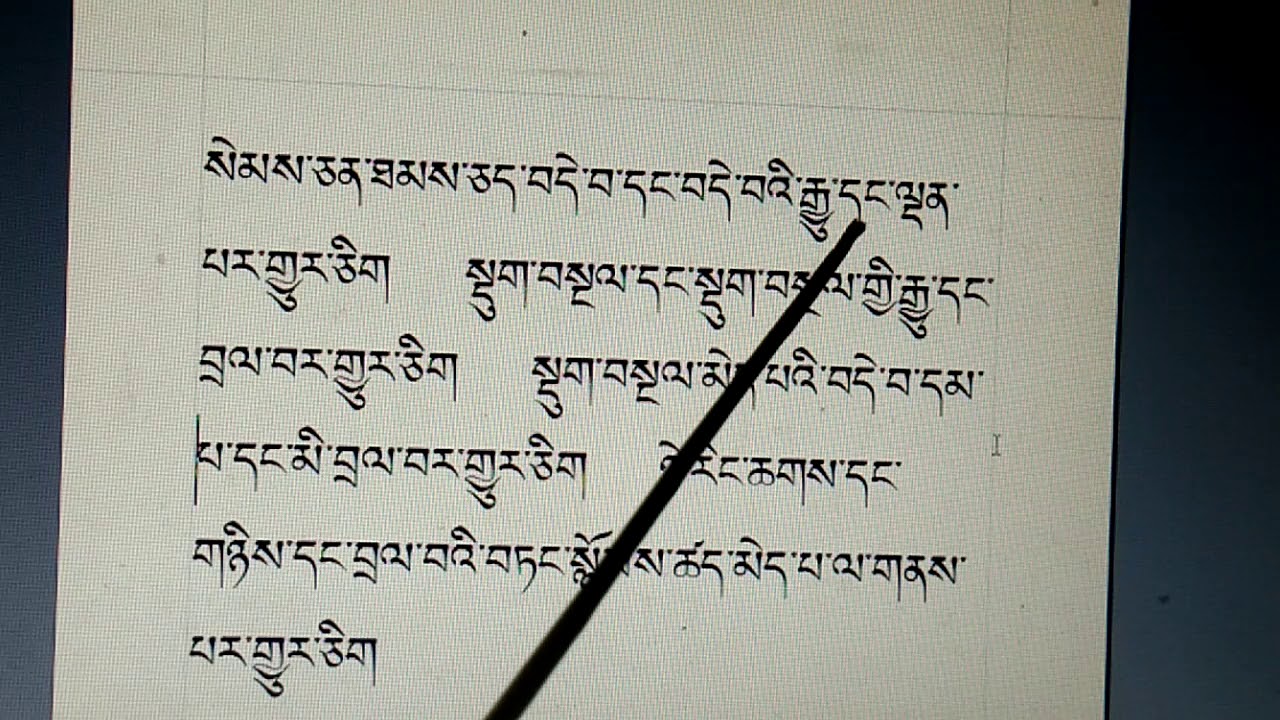 སེམས་ཅན་ཐམས་ཅད་བདེ་བ་དང་བདེ་བའི་རྒྱུ་དང་ལྡན་
པར་གྱུར་ཅིག སྡུག་བསྔལ་དང་སྡུག་བསྔལ་གྱི་རྒྱུ་དང་
བྲལ་བར་གྱུར་ཅིག སྡུག་བསྔལ་མེད་པའི་བདེ་བ་དམ་
པ་དང་མི་བྲལ་བར་གྱུར་ཅིག ཉེ་རིང་ཆགས་དང་
གཉིས་དང་བྲལ་བའི་བཏང་སྙོམས་ཚད་མེད་པ་ལ་གནས་
པར་གྱུར་ཅིག